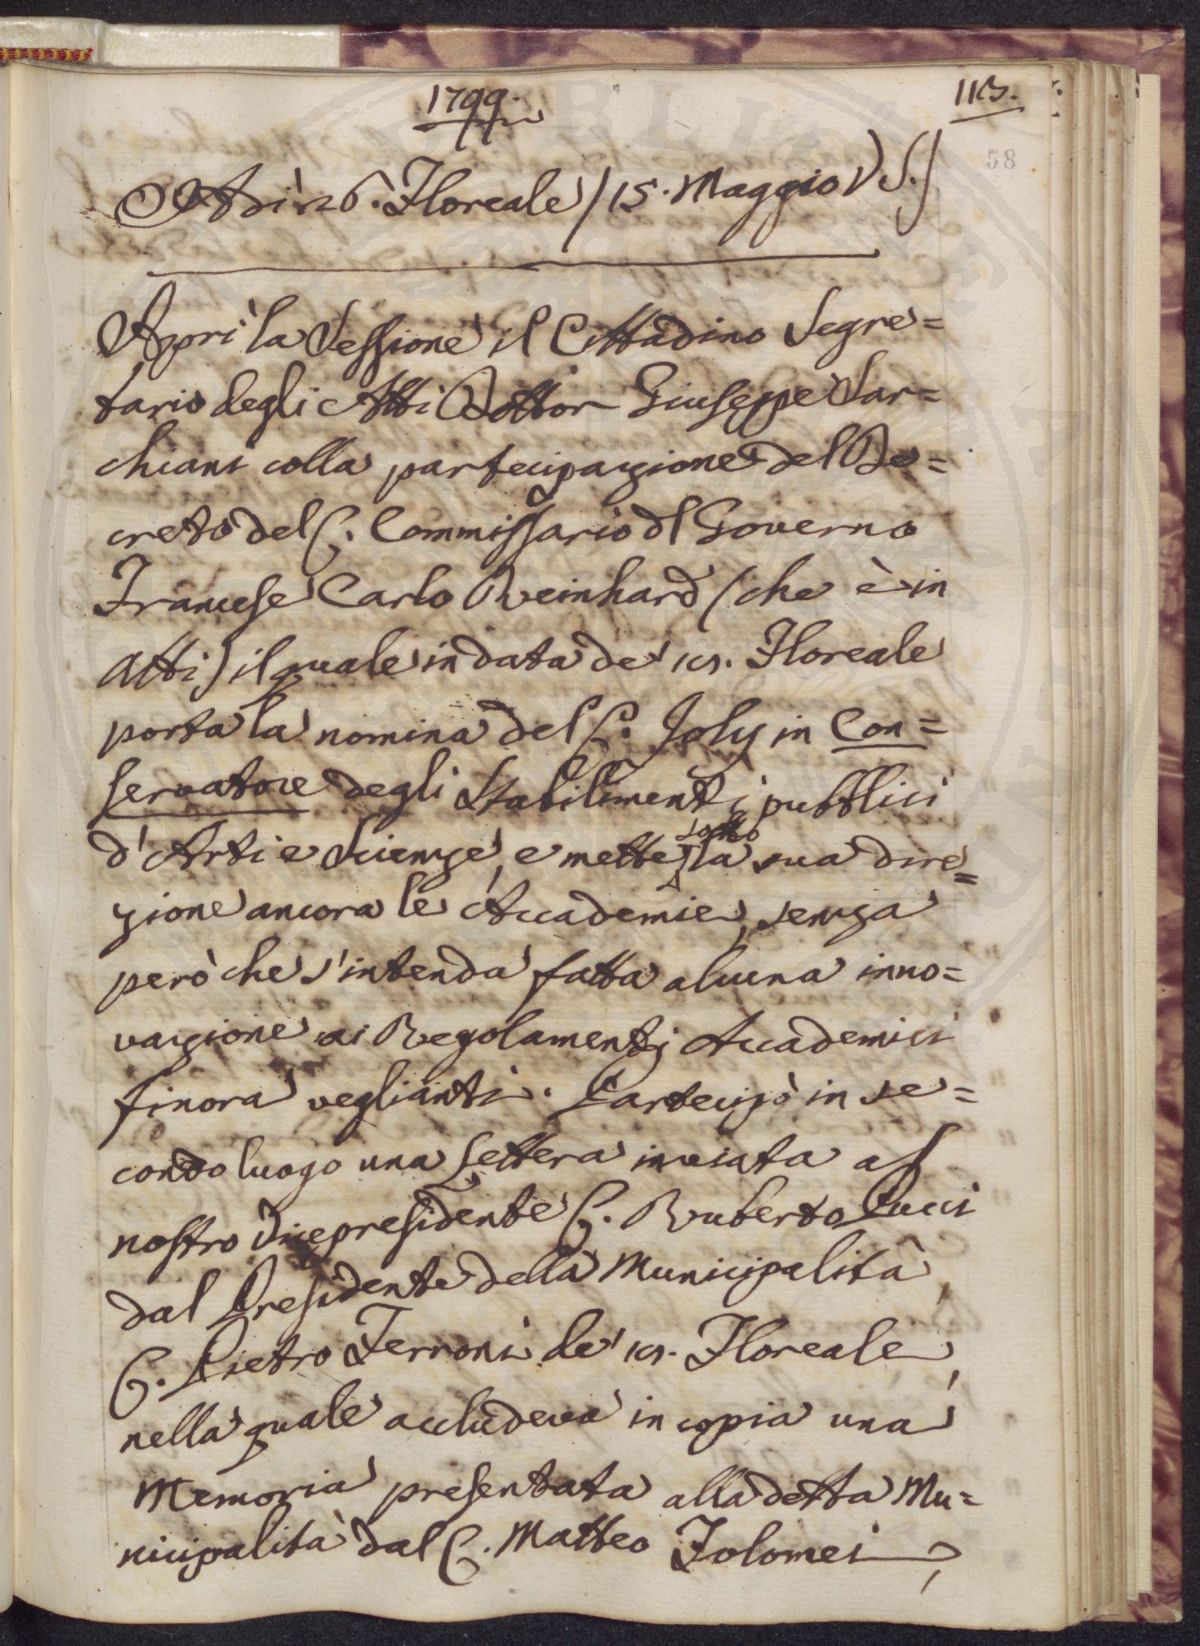 1799.
113.
58
Adì 26. Floreale / 15. Maggio V. S. /
Aprì la Sessione il Cittadino Segre=
tario degli Atti Dottor Giuseppe Sar=
chiani colla partecipazione del De=
creto del C. Commissario dl Governo
Francese Carlo Reinhard / che è in
Atti / il quale in data de' 19. Floreale
porta la nomina del C. Joly in Con=
servatore degli Stabilimenti pubblici
d'Arti e Scienze, e mette sotto la sua dire=
zione ancora le Accademie, senza
però che s'intenda fatta alcuna inno=
vazione ai Regolamenti Accademici
finora veglianti. Partecipò in se=
condo luogo una Lettera inviata al
nostro Vicepresidente C. Ruberto Pucci
dal Presidente della Municipalità,
C. Pietro Ferroni de' 19. Floreale,
nella quale accludeva in copia una
Memoria presentata alla detta Mu=
nicipalità dal C. Matteo Tolomei,